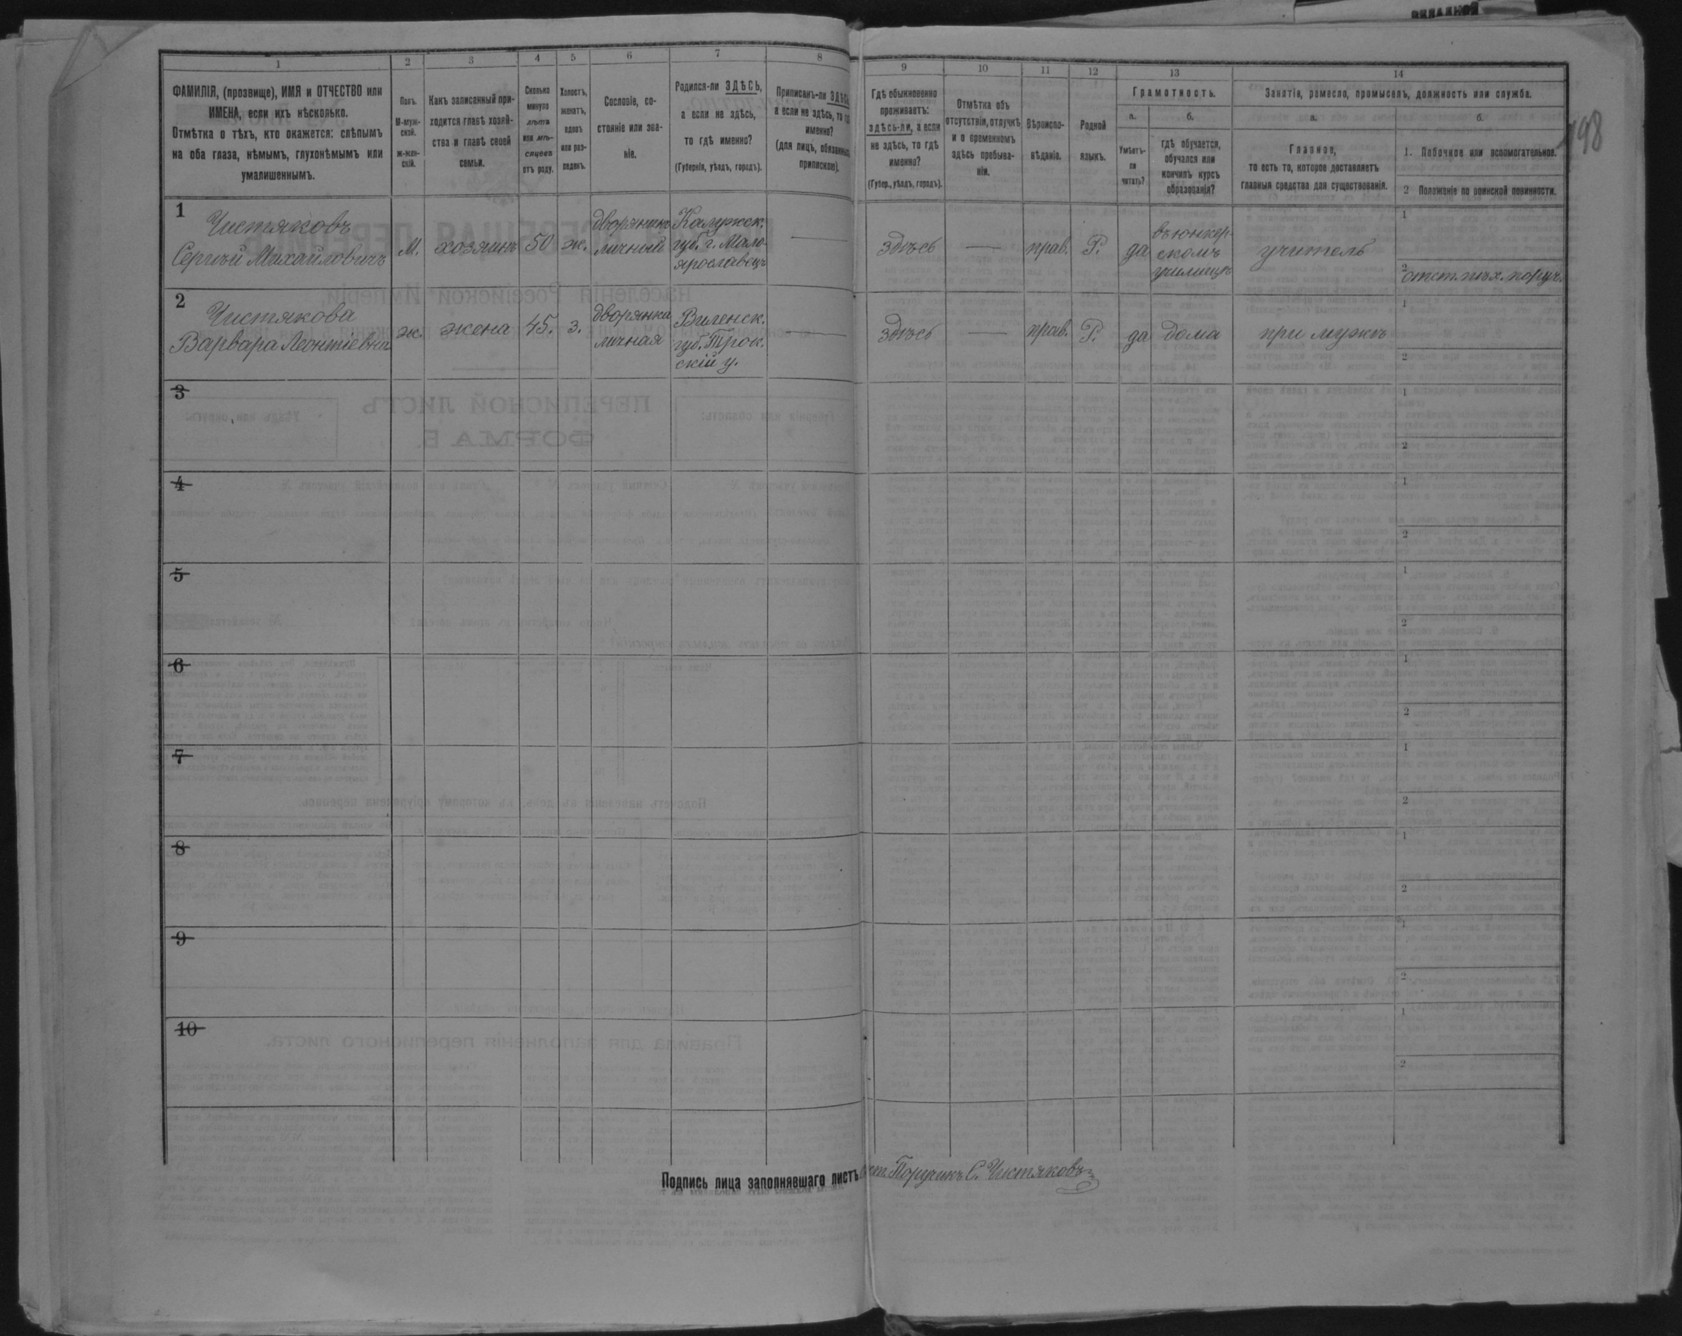 1 2 3 4 5 6 7 8 9 10 11 12 13 14
ФАМИЛІЯ, (прозвище), ИМЯ и ОТЧЕСТВО или
ИМЕНА, если ихъ нѣсколько.
Отмѣтка о тѣхъ, кто окажется: слѣпымъ
на оба глаза, нѣмымъ, глухонѣмымъ или
умалишеннымъ.
Полъ.
М-муж-
ской.
ж-жен-
скій.
Какъ записанный при-
ходится главѣ хозяй-
ства и главѣ своей
семьи.
Сколько
минуло
лѣтъ
или мѣ-
сяцевъ
отъ роду.
Холостъ,
женатъ,
вдовъ
или раз-
веденъ.
Сословіе, со-
стояніе или зва-
ніе.
Родился-ли ЗДѢСЬ,
а если не здѣсь,
то гдѣ именно?
(Губернія, уѣздъ, городъ).
Приписанъ-ли ЗДѢСЬ,
а если не здѣсь, то гдѣ
именно?
(для лицъ, обязанныхъ
припискою).
Гдѣ обыкновенно
проживаетъ:
здѣсь-ли, а если
не здѣсь, то гдѣ
именно?
(Губер., уѣздъ, городъ).
Отмѣтка объ
отсутствіи, отлучкѣ
и о временномъ
здѣсь пребыва-
ніи.
Вѣроиспо-
вѣданіе.
Родной
языкъ.
Грамотность.
а.
Умѣетъ-
ли
читать?
б.
гдѣ обучается,
обучался или
кончилъ курсъ
образованія?
Занятіе, ремесло, промыселъ, должность или служба.
а.
Главное,
то есть то, которое доставляетъ
главныя средства для существованія.
б.
1. Побочное или вспомогательное.
2 Положеніе по воинской повинности.
198
1
Чистяковъ
Сергѣй Михайловичъ
М.
хозяинъ
50
ж.
дворянинъ
личный
Калужск.
губ. г. Мало-
ярославецъ
здѣсь
прав.
Р.
да
въ юнкер-
скомъ
училищѣ
учитель
1
2 отст. пѣх. поруч.
2
Чистякова
Варвара Леонтіевна
ж.
жена
45.
з.
дворянка
личная
Виленск.
губ. Трок-
скій у.
здѣсь
прав.
Р.
да
дома
при мужѣ
1
2
3
1
2
4
1
2
5
1
2
6
1
2
7
1
2
8
1
2
9
1
2
10
1
2
Подпись лица заполнявшаго листъ
Поручикъ С. Чистяковъ